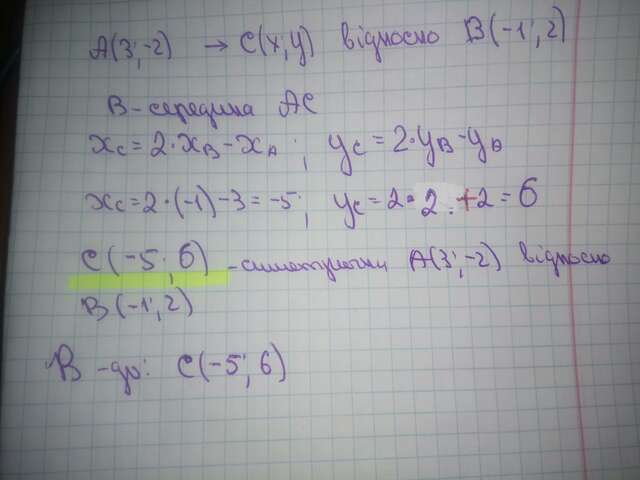 A(3; -2) → C(x; y) відносно B(-1; 2)
B - середина AC
xc = 2·xB - xA ; yc = 2·yB - yA
xc = 2·(-1) - 3 = -5; yc = 2·2 + 2 = 6
C(-5; 6) - симетрична A(3; -2) відносно
B(-1; 2)
В-дь: C(-5; 6)